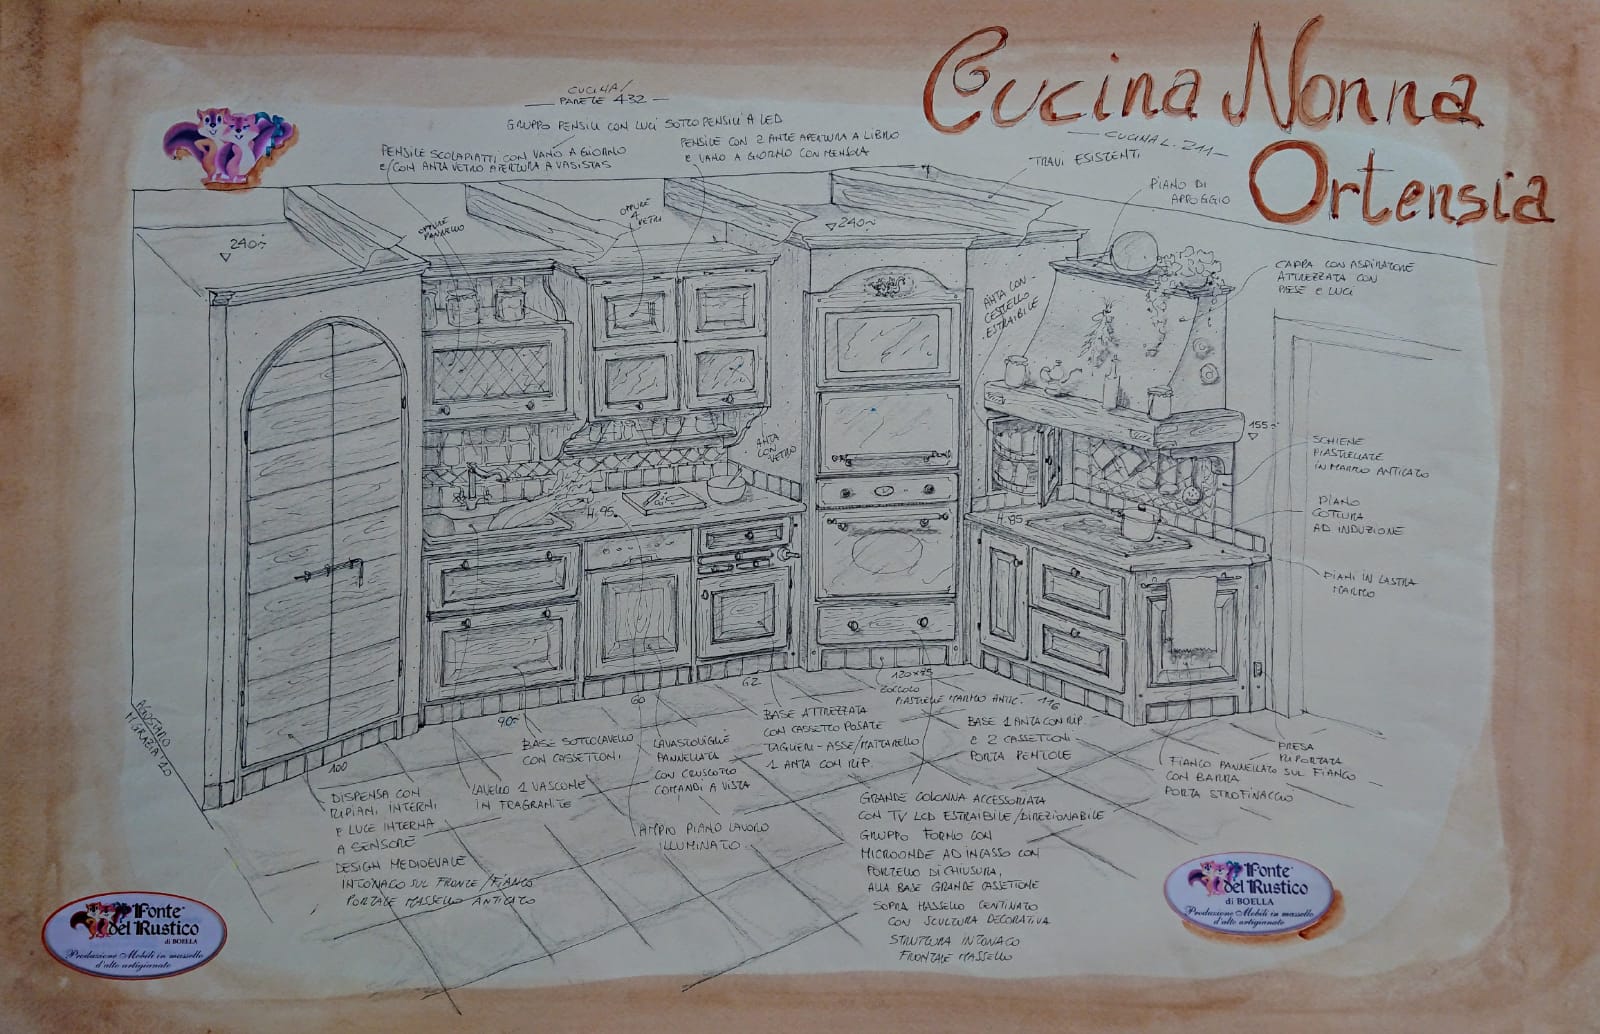 Cucina Nonna
Ortensia
CUCINA/
PARETE 432
CUCINA L. 211
GRUPPO PENSILI CON LUCI SOTTOPENSILI A LED
PENSILE SCOLAPIATTI CON VANO A GIORNO
E/CON ANTA VETRO APERTURA A VASISTAS
PENSILE CON 2 ANTE APERTURA A LIBRO
E VANO A GIORNO CON MENSOLA
TRAVI ESISTENTI
PIANO DI
APPOGGIO
OPPURE
PANNELLO
OPPURE
4
VETRI
240
240
CAPPA CON ASPIRATORE
ATTREZZATA CON
PRESE E LUCI
ANTA CON
CESTELLO
ESTRAIBILE
ANTA
CON
VETRO
155
SCHIENE
PIASTRELLATE
IN MARMO ANTICATO
PIANO
COTTURA
AD INDUZIONE
PIANI IN LASTRA
MARMO
H. 95
H. 85
100
90
60
62
120x75
116
ZOCCOLO
PIASTRELLE MARMO ANTIC.
BASE SOTTOLAVELLO
CON CASSETTONI
LAVELLO 1 VASCONE
IN FRAGRANITE
LAVASTOVIGLIE
PANNELLATA
CON CRUSCOTTO
COMANDI A VISTA
AMPIO PIANO LAVORO
ILLUMINATO
BASE ATTREZZATA
CON CASSETTO POSATE
TAGLIERI-ASSE/MATTARELLO
1 ANTA CON RIP.
BASE 1 ANTA CON RIP.
E 2 CASSETTONI
PORTA PENTOLE
FIANCO PANNELLATO SUL FIANCO
CON BARRA
PORTA STROFINACCIO
PRESA
RIPORTATA
DISPENSA CON
RIPIANI INTERNI
E LUCE INTERNA
A SENSORE
DESIGN MEDIOEVALE
INTONACO SUL FRONTE/FIANCO
PORTALE MASSELLO ANTICATO
GRANDE COLONNA ACCESSORIATA
CON TV LCD ESTRAIBILE/DIREZIONABILE
GRUPPO FORNO CON
MICROONDE AD INCASSO CON
PORTELLO DI CHIUSURA,
ALLA BASE GRANDE CASSETTONE
SOPRA MASSELLO CENTINATO
CON SCULTURA DECORATIVA
STRUTTURA INTONACO
FRONTALE MASSELLO
M. GRAZIA '20
Fonte
del Rustico
di BOELLA
Produzione Mobili in massello
d'alto artigianato
Fonte
del Rustico
di BOELLA
Produzione Mobili in massello
d'alto artigianato